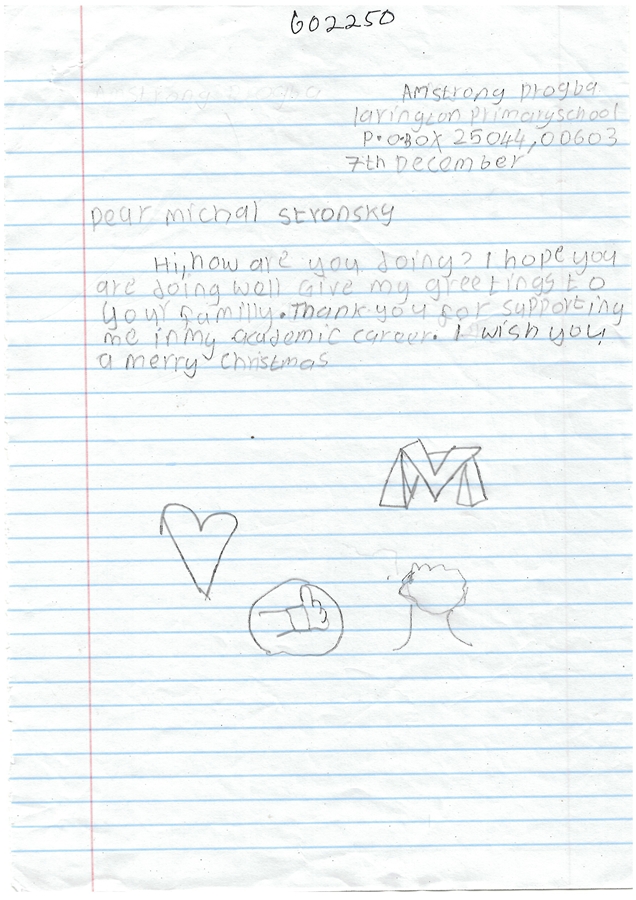 602250
Amstrong Drogba
larington primaryschool
P.O.BOX 25044,00603
7th December
Dear michal stronsky
Hi,how are you doing? I hope you
are doing well Give my greetings to
your familly.Thank you for supporting
me in my academic career. I wish you
a merry christmas
M